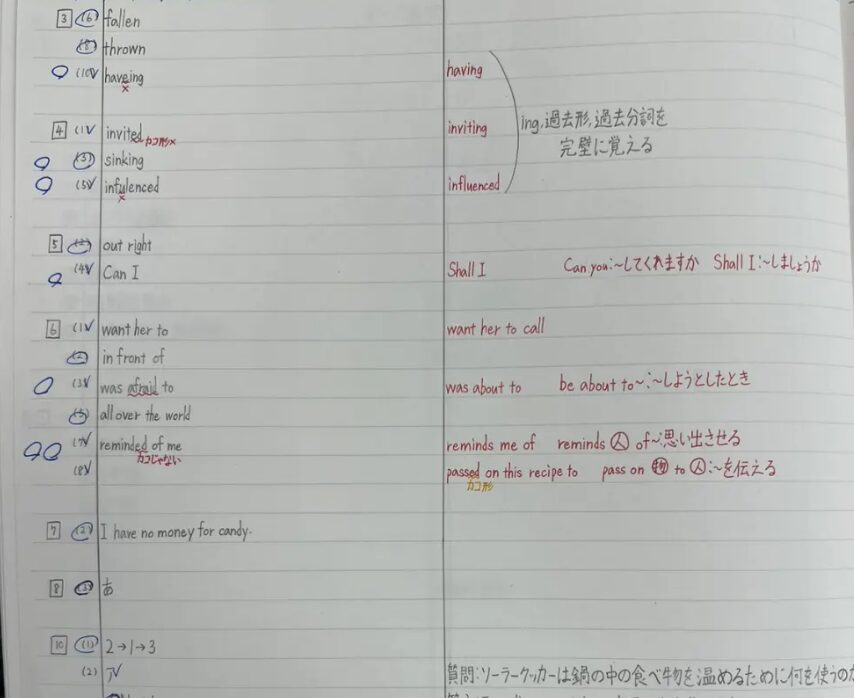 3 (6) fallen
(8) thrown
(10) haveing having
×
4 (1) invited カコ形× inviting ing,過去形,過去分詞を
完璧に覚える
(3) sinking
(5) infulenced influenced
×
5 (2) out right
(4) Can I Shall I Can you:〜してくれますか Shall I:〜しましょうか
6 (1) want her to want her to call
(2) in front of
(3) was afraid to was about to be about to〜:〜しようとしたとき
(5) all over the world
(7) reminded of me reminds me of reminds 人 of〜:思い出させる
カコじゃない
(8) passed on this recipe to pass on 物 to 人:〜を伝える
カコ形
7 (2) I have no money for candy.
8 あ
10 (1) 2→1→3
(2) ア 質問:ソーラークッカーは鍋の中の食べ物を温めるために何を使うの